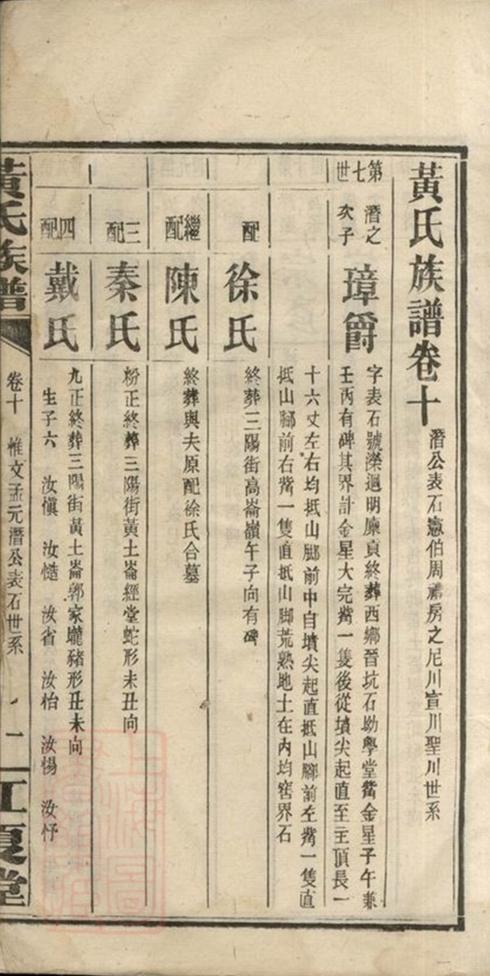 黃氏族譜卷十 潛公表石憲伯周禮房之尼川宣川聖川世系
第七世
潛之次子
璋爵 字表石號濚迴明廪貢終葬西鄉晉坑石坳學堂觜金星子午兼
壬丙有碑其界計金星大完觜一隻後從墳尖起直至主頂長一
十六丈左右均抵山腳前中自墳尖起直抵山腳前左觜一隻直
抵山腳前右觜一隻直抵山腳荒熟地土在內均窖界石
配 徐氏 終葬三陽街高崙嶺午子向有碑
繼配 陳氏 終葬與夫原配徐氏合墓
三配 秦氏 歿正終葬三陽街黃土崙經堂蛇形未丑向
四配 戴氏 九正終葬三陽街黃土崙郭家壠豬形丑未向
生子六 汝愼 汝慥 汝省 汝怡 汝惕 汝忬
黃氏族譜 卷十 惟文孟元潛公表石世系 一 江夏堂